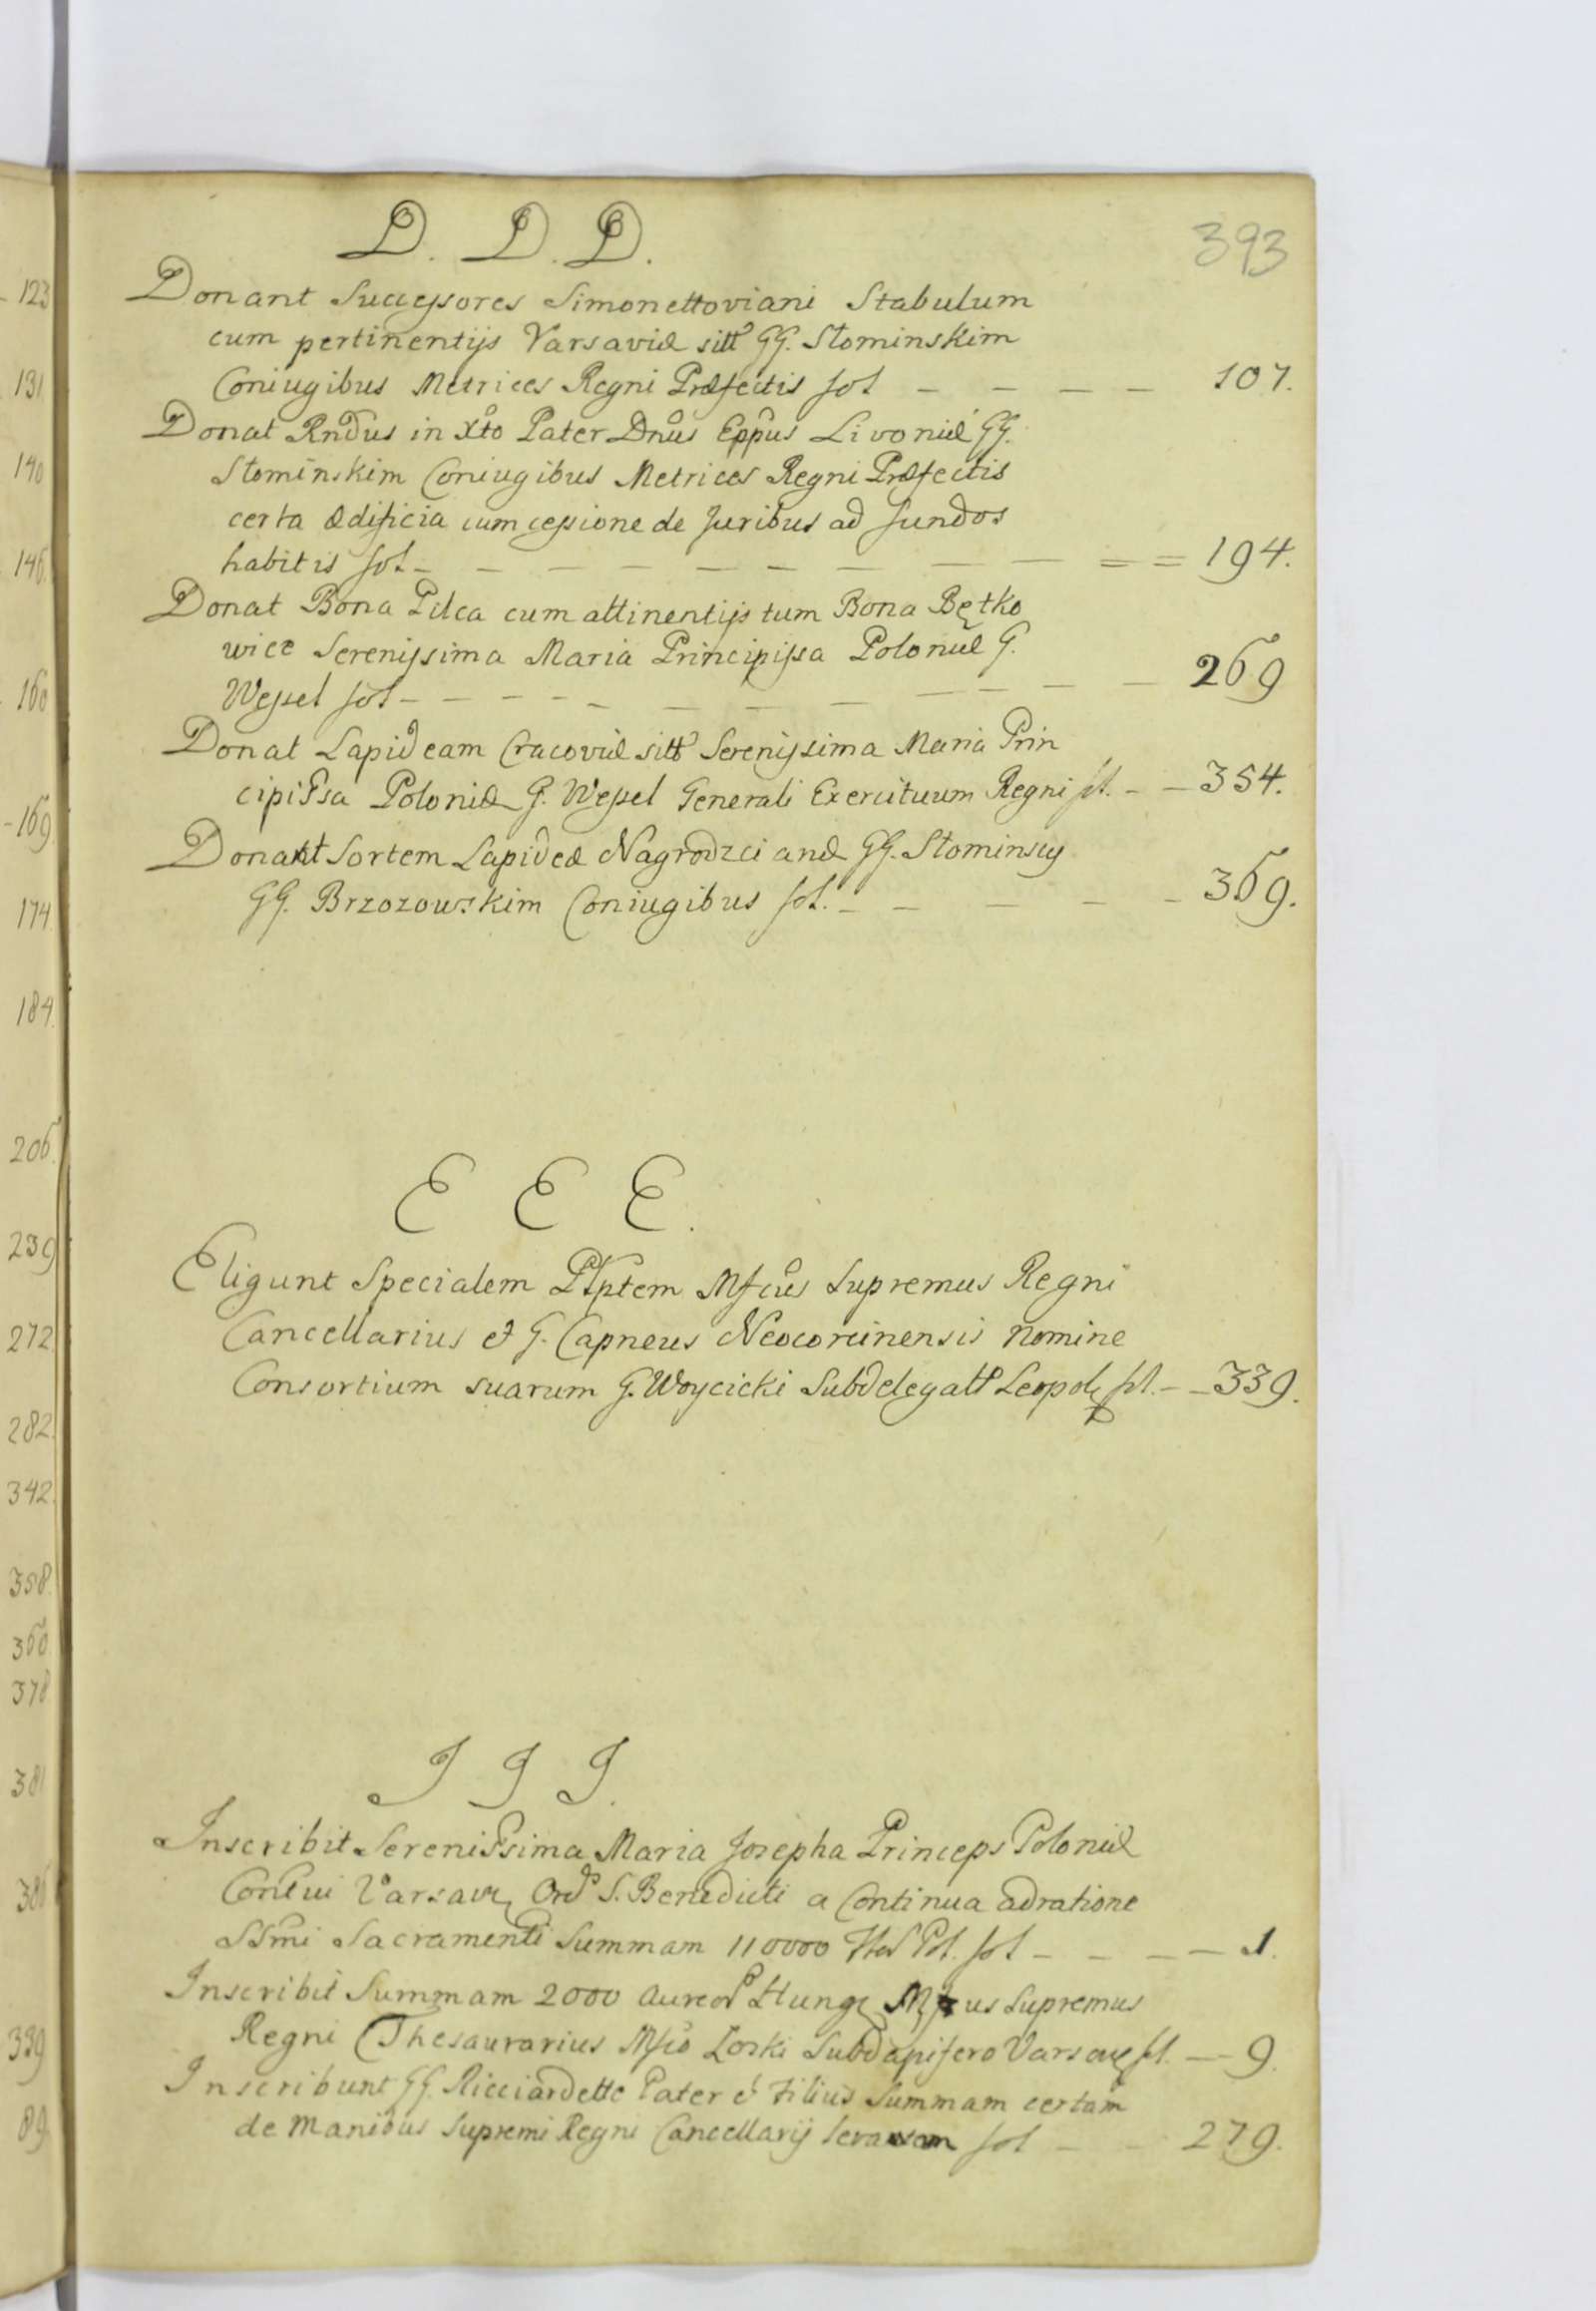 393
D. D. D.
Donant Successores Simonettoviani Stabulum
cum pertinentijs Varsaviæ sitt GG. Słominskim
Coniugibus Metrices Regni Præfectis fol — — — — 107.
Donat Rndus in Xto Pater Dnus Eppus Livoniæ GG.
Słominskim Coniugibus Metrices Regni Præfectis
certa ædificia cum cessione de Juribus ad fundos
habitis fol — — — — — — — — — = = 194.
Donat Bona Pilca cum attinentijs tum Bona Bętko
wice Serenissima Maria Principissa Poloniæ G.
Wessel fol — — — — — — — — — — — 269
Donat Lapideam Cracoviæ sitt Serenissima Maria Prin
cipissa Poloniæ G. Wessel Generali Exercituum Regni fl. — — 354.
Donant Sortem Lapideæ Nagrodzcianæ GG. Słominscy
GG. Brzozowskim Coniugibus fol. — — — — — 369.
E E E.
Eligunt Specialem Mfcus Supremus Regni
Cancellarius et G. Capneus Neocorcinensis nomine
Consortium suarum G. Woycicki Subdelegatt Leopol fol. — — 339.
J J J.
Inscribit Serenissima Maria Josepha Princeps Poloniæ
Contui Varsav Ord S. Benedicti a Continua adratione
SSmi Sacramenti Summam 110000 fl Pol. fol — — — — 1.
Inscribit Summam 2000 aureor Hung Mfcus Supremus
Regni Thesaurarius Mfco Łoski Subdapifero Varsav fl. — 9.
Inscribunt GG. Ricciardette Pater et Filius Summam certam
de Manibus Supremi Regni Cancellarij levatam fol — — 279.
123
131
140
146.
160
169
174
184.
206.
239
272
282.
342.
358.
360
378
381
386
339
89.